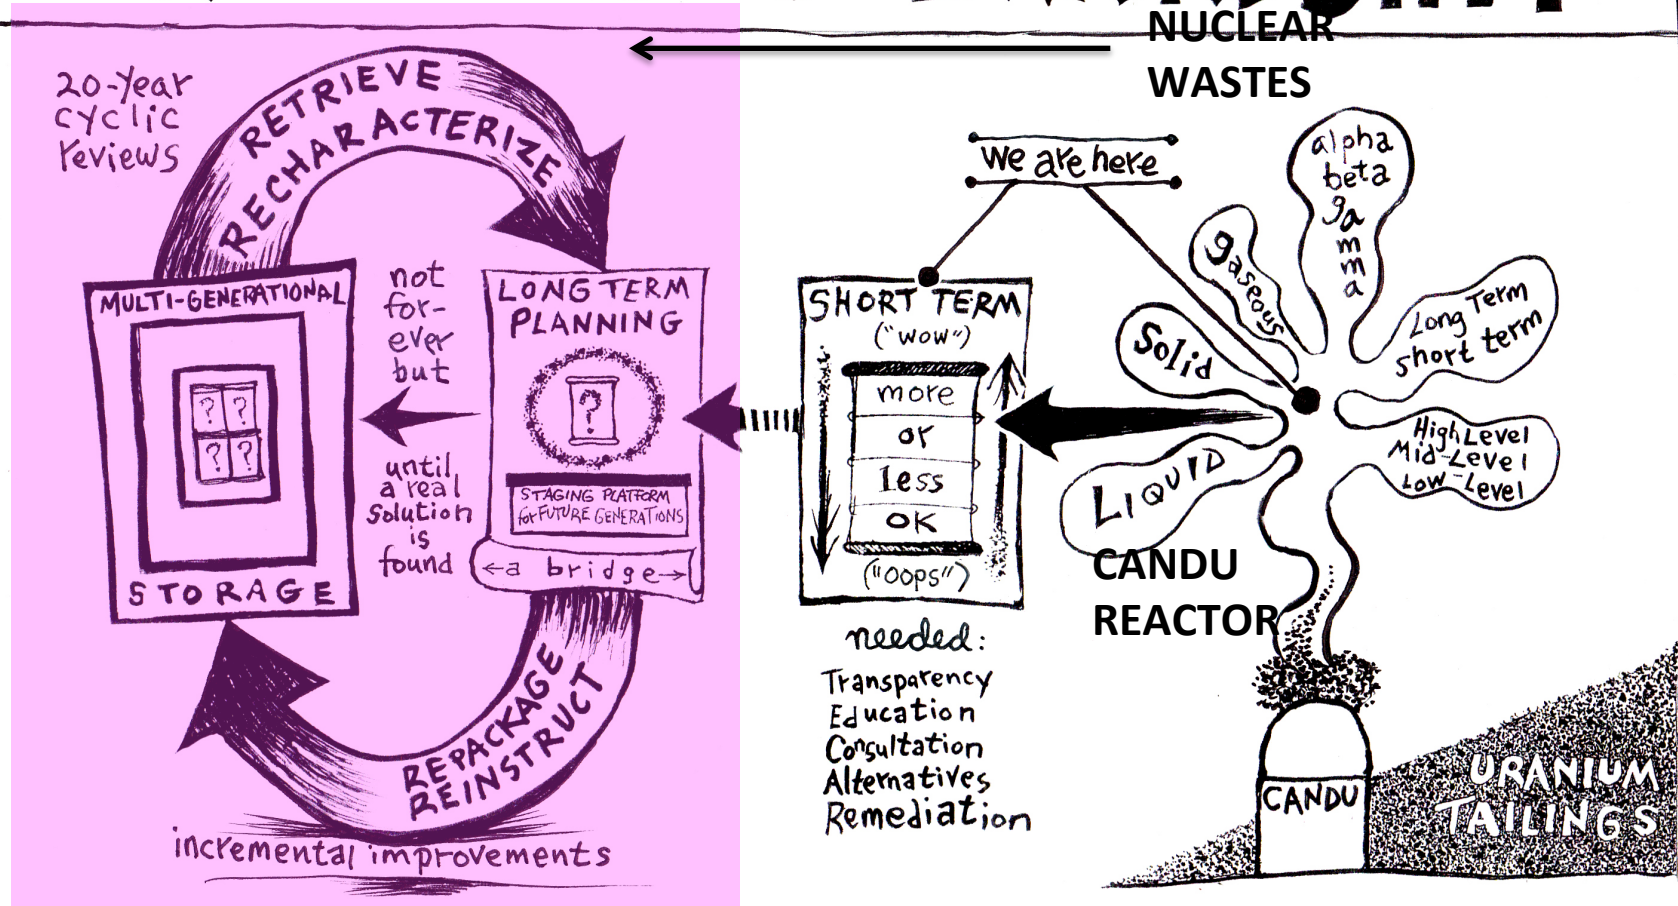 NUCLEAR
WASTES
20-year
cyclic
reviews
RETRIEVE
RECHARACTERIZE
MULTI-GENERATIONAL
? ?
? ?
STORAGE
not
for-
ever
but
until
a real
solution
is
found
LONG TERM
PLANNING
?
STAGING PLATFORM
for FUTURE GENERATIONS
a bridge
REPACKAGE
REINSTRUCT
incremental improvements
we are here
SHORT TERM
("wow")
more
or
less
OK
("oops")
needed:
Transparency
Education
Consultation
Alternatives
Remediation
alpha
beta
ga
m
m
a
gaseous
Solid
LIQUID
Long Term
short term
High Level
Mid-Level
Low-Level
CANDU
REACTOR
CANDU
URANIUM
TAILINGS